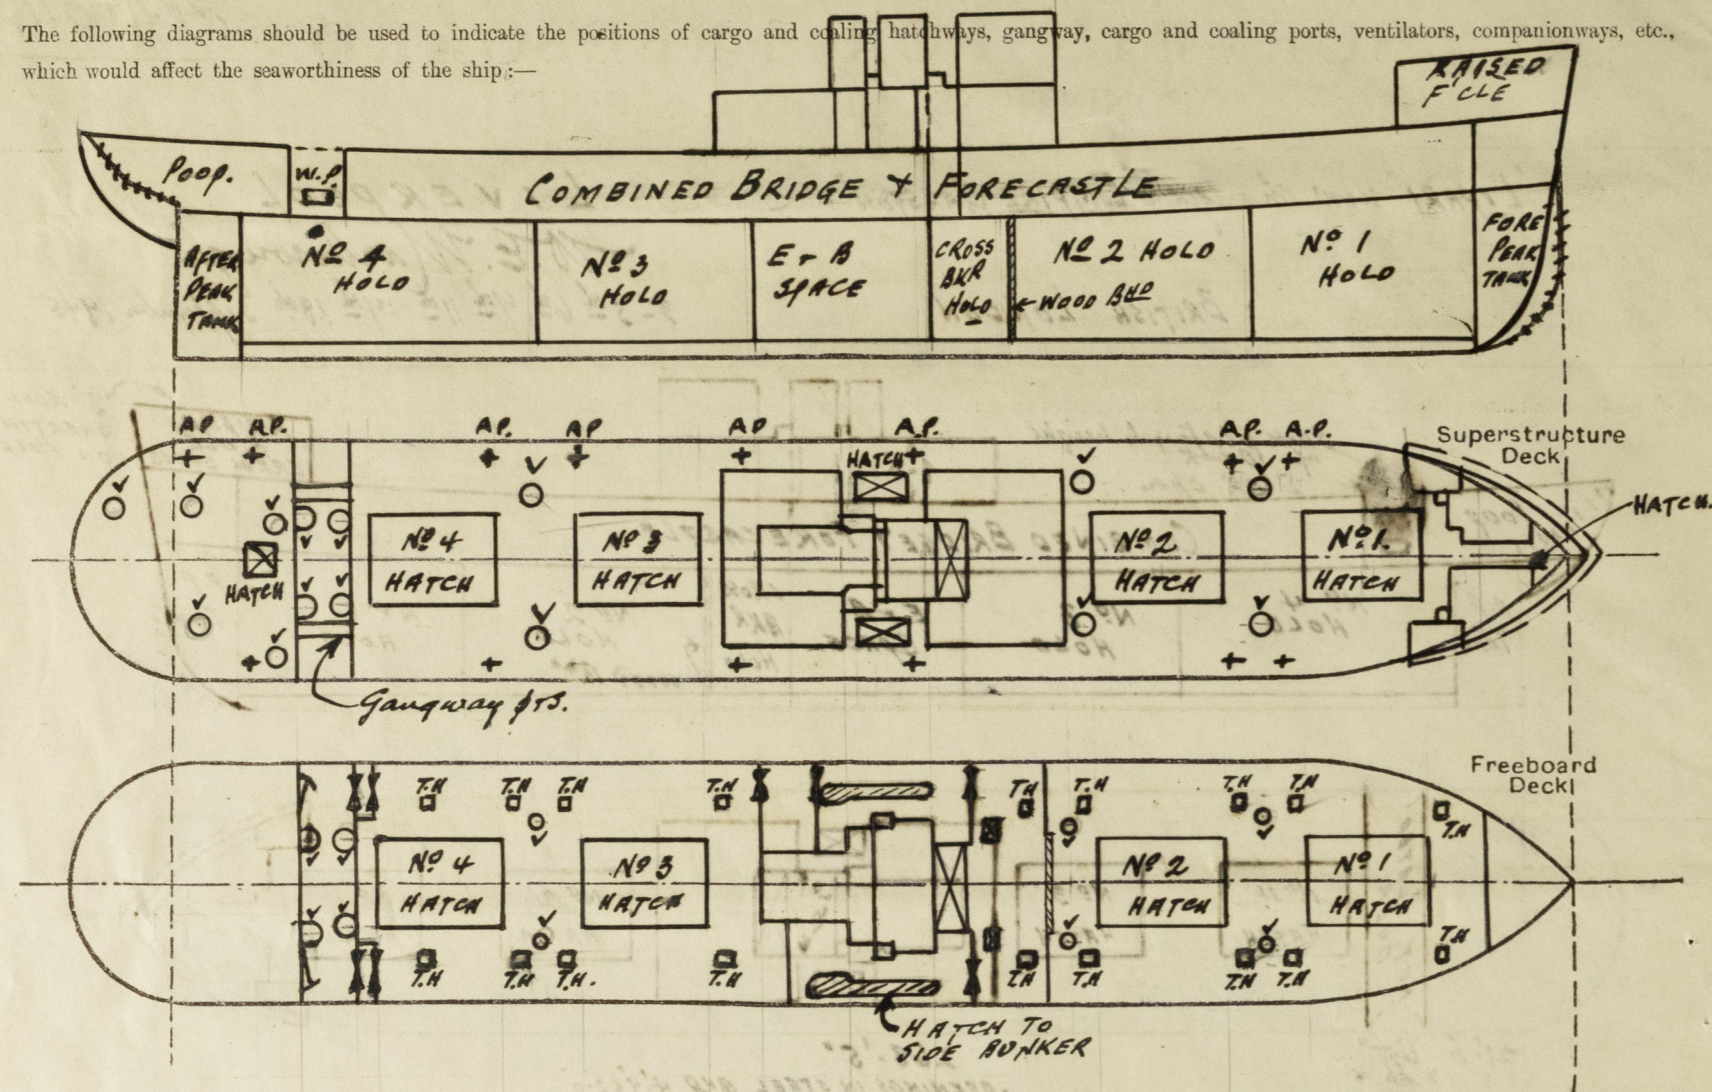 The following diagrams should be used to indicate the positions of cargo and coaling hatchways, gangway, cargo and coaling ports, ventilators, companionways, etc.,
which would affect the seaworthiness of the ship :—
RAISED
F'CLE
POOP.
W.P.
COMBINED BRIDGE + FORECASTLE
AFTER
PEAK
TANK
Nº 4
HOLD
Nº 3
HOLD
E + B
SPACE
CROSS
BKR
HOLD
Nº 2 HOLD
← WOOD BHD
Nº 1
HOLD
FORE
PEAK
TANK
A.P A.P. A.P. A.P A.P A.P. A.P. A.P.
Superstructure
Deck
HATCH
HATCH.
Nº 4
HATCH
Nº 3
HATCH
Nº 2
HATCH
Nº 1.
HATCH
HATCH
Gangway prs.
Freeboard
Deck
T.H T.H T.H T.H T.H T.H T.H T.H
T.H
Nº 4
HATCH
Nº 3
HATCH
Nº 2
HATCH
Nº 1
HATCH
T.H
T.H T.H T.H. T.H T.H T.H T.H T.H
HATCH TO
SIDE BUNKER